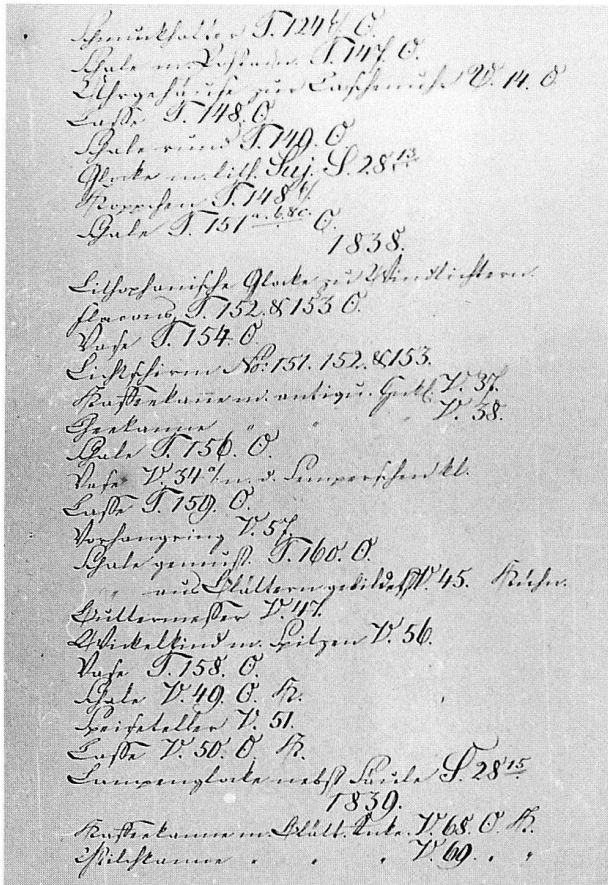 Schmuckhalter T. 124 b/ O.
Schale m. Postam. T. 147. O.
Uhrgehäuse zur Taschenuhr U. 14. O
Tasse T. 148. O.
Schale rund T. 149. O
Glocke m. lith. Suj. S. 28 13.
Köppchen T. 148
Schale T. 151 a. b. &c. O.
1838.
Lithophanische Glocke zu Windlichtern.
Flacons T. 152. & 153 O.
Vase T. 154. O
Lichtschirm No: 151. 152. & 153.
Kaffeekanne m. antiqu. Henkl. V. 37.
Theekanne " " V. 38.
Schale T. 156. O.
Vase V. 34 a/ n. d. Semperschen kl.
Tasse T. 159. O.
Vorhangring V. 57.
Schale gemusch. T. 160. O.
" aus Blättern gebildet V. 45. Kühn.
Buttermesser V. 47.
Wickelkind m. Spitzen V. 56.
Vase T. 158. O.
Schale V. 49. O. K.
Speiseteller V. 51.
Tasse V. 50. O. K.
Lampenglocke nebst Säule S. 28 15.
1839.
Kaffeekanne m. Blätt. V. 68. O. K.
Milchkanne " " " V. 69. " "